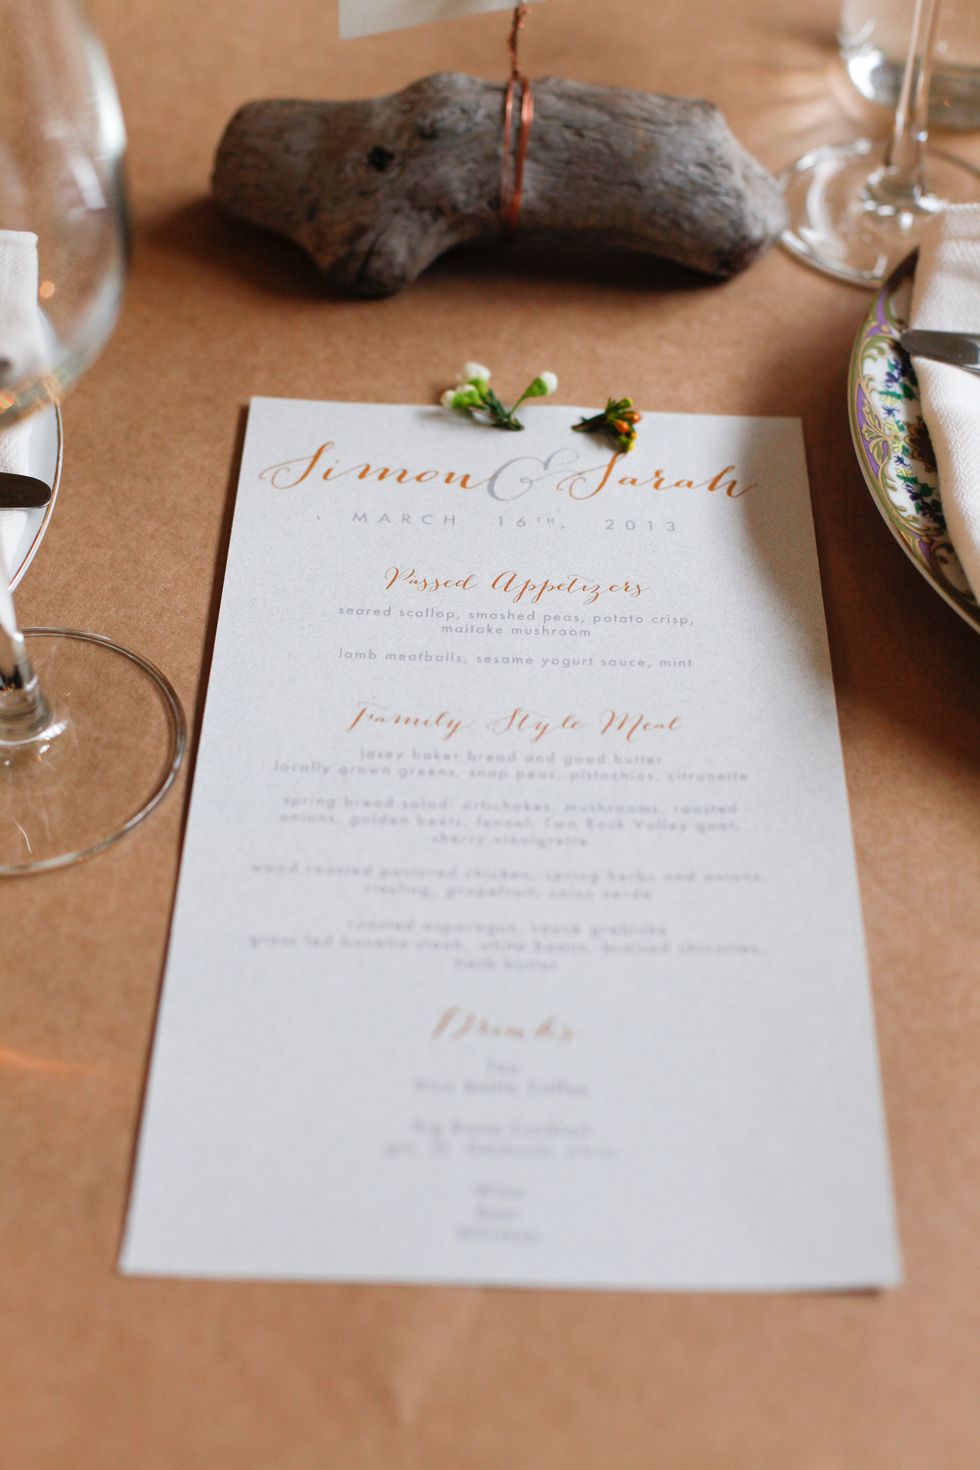 Simon & Sarah
MARCH 16TH, 2013
Passed Appetizers
seared scallop, smashed peas, potato crisp,
maitake mushroom
lamb meatballs, sesame yogurt sauce, mint
Family Style Meal
josey baker bread and good butter
locally grown greens, snap peas, pistachios, citronette
spring bread salad: artichokes, mushrooms, roasted
onions, golden beets, fennel, Two Rock Valley goat,
sherry vinaigrette
wood roasted pastured chicken, spring herbs and onions,
riesling, grapefruit, salsa verde
roasted asparagus, sauce gribiche
grass fed bavette steak, white beans, braised chicories,
herb butter
Drinks
Tea
Blue Bottle Coffee
Wine